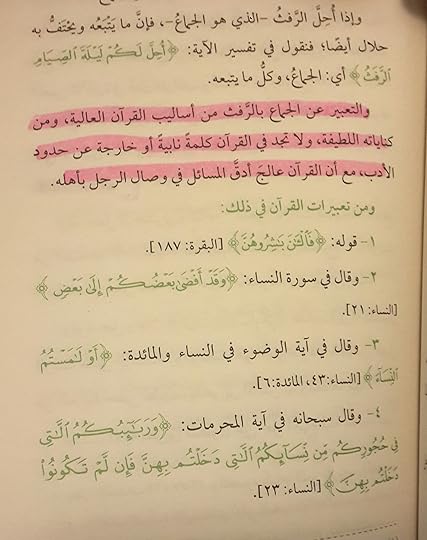 وإذا أُحِلَّ الرَّفثُ –الذي هو الجماعُ–، فإنَّ ما يَتْبَعُه ويختَفُّ به
حلال أيضًا؛ فنقول في تفسير الآية: ﴿أُحِلَّ لَكُمْ لَيْلَةَ ٱلصِّيَامِ
ٱلرَّفَثُ﴾ أي: الجماعُ، وكلُّ ما يتبعه.
والتعبير عن الجماع بالرَّفث من أساليب القرآن العالية، ومن
كناياته اللطيفة، ولا تجد في القرآن كلمةً نابيةً أو خارجة عن حدود
الأدب، مع أن القرآن عالجَ أدقَّ المسائل في وصال الرجل بأهله.
ومن تعبيرات القرآن في ذلك:
١- قوله: ﴿فَٱلْـَٰٔنَ بَٰشِرُوهُنَّ﴾ [البقرة: ١٨٧].
٢- وقال في سورة النساء: ﴿وَقَدْ أَفْضَىٰ بَعْضُكُمْ إِلَىٰ بَعْضٍ﴾
[النساء: ٢١].
٣- وقال في آية الوضوء في النساء والمائدة: ﴿أَوْ لَٰمَسْتُمُ
ٱلنِّسَآءَ﴾ [النساء: ٤٣، المائدة: ٦].
٤- وقال سبحانه في آية المحرمات: ﴿وَرَبَٰٓئِبُكُمُ ٱلَّٰتِى
فِى حُجُورِكُم مِّن نِّسَآئِكُمُ ٱلَّٰتِى دَخَلْتُم بِهِنَّ فَإِن لَّمْ تَكُونُوا۟
دَخَلْتُم بِهِنَّ﴾ [النساء: ٢٣].